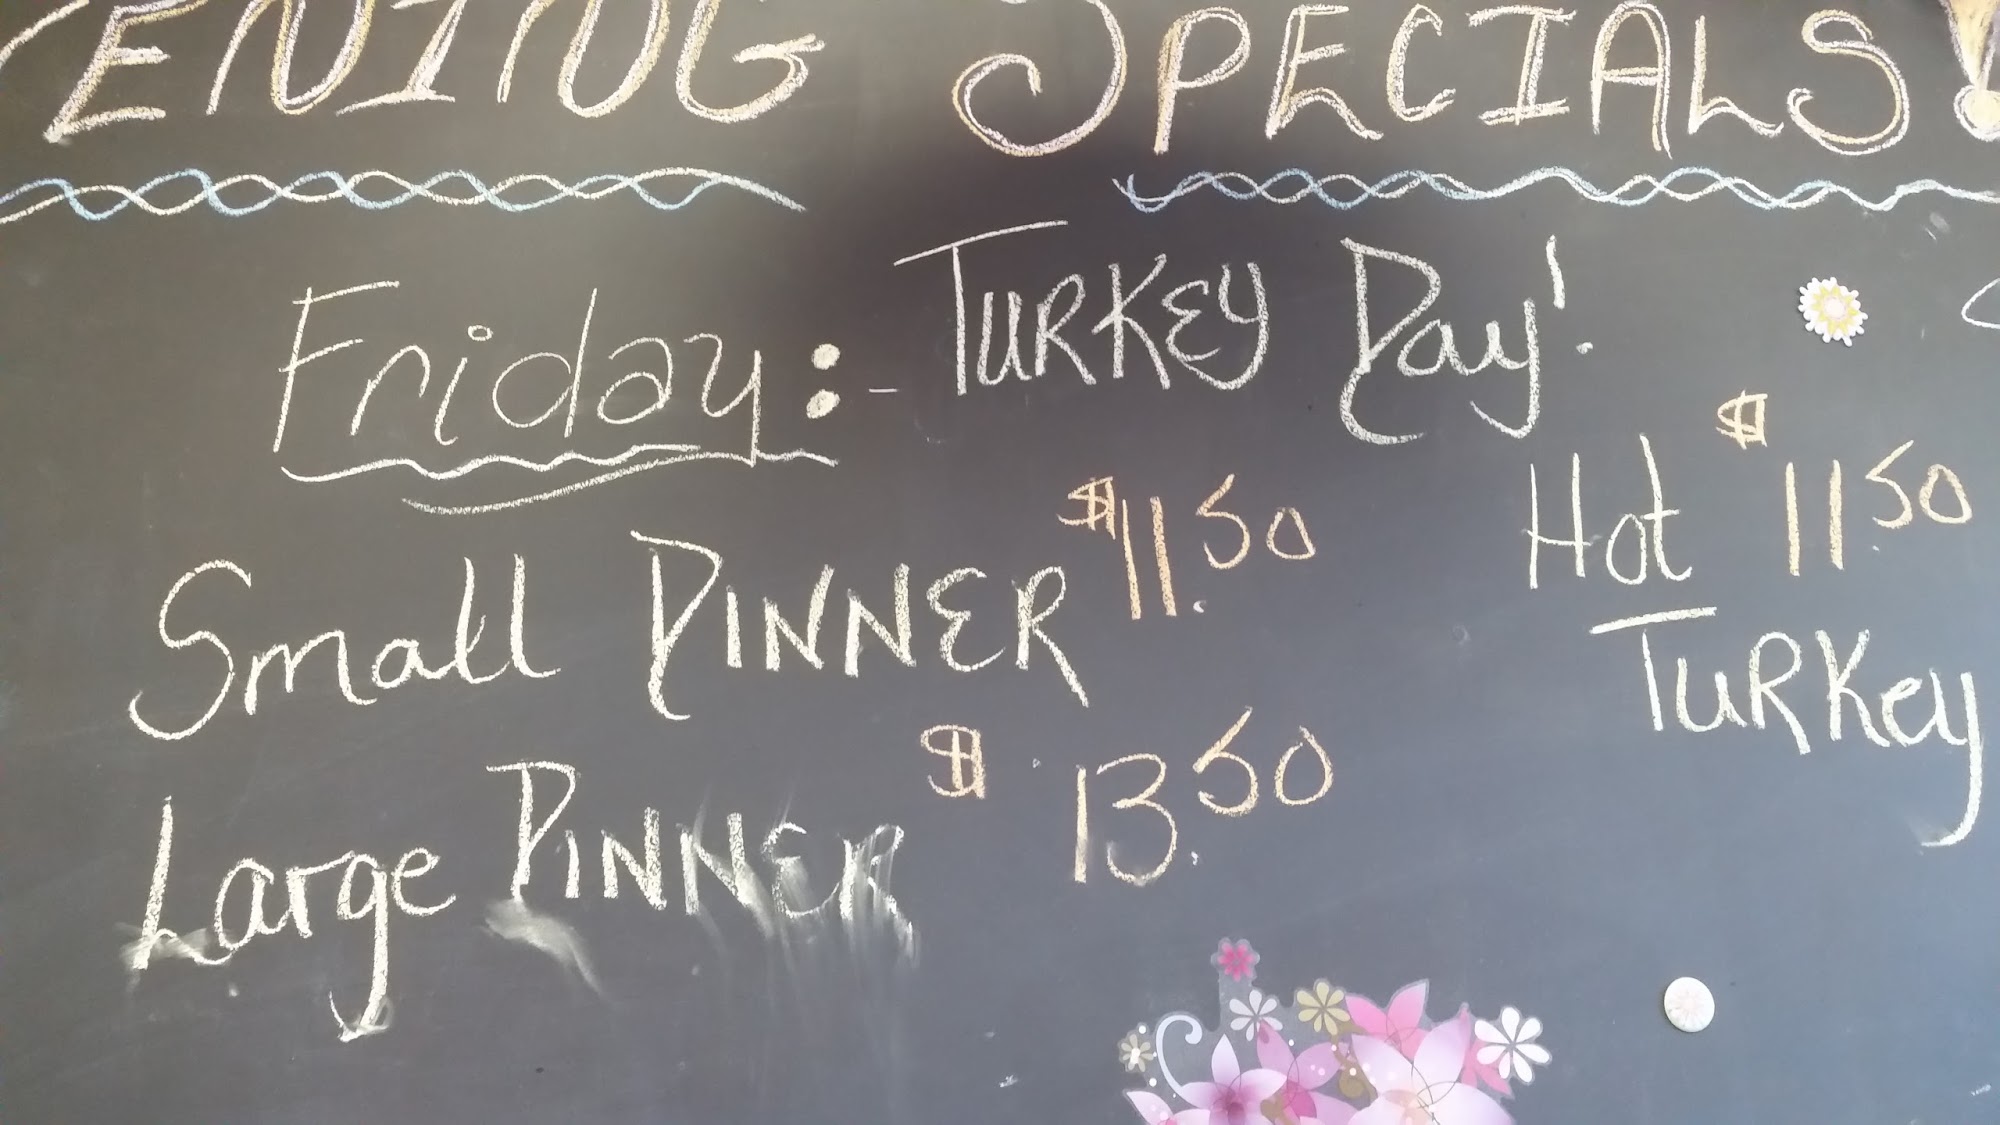 ENING SPECIALS!
Friday:- TURKEY Day!
Small DINNER $11.50
Large DINNER $13.50
Hot $11.50
TURKey